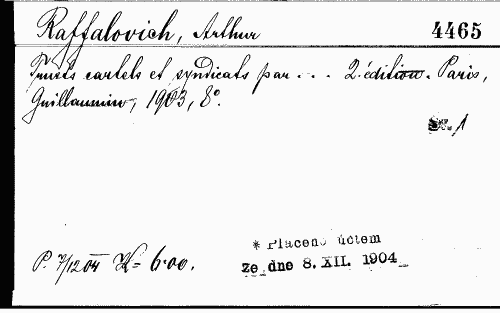 Raffalovich, Arthur 4465
Trusts cartels et syndicats par . . . 2. édition. Paris,
Guillaumin, 1903, 8°.
1
* Placeno účtem
P. 7/12 04 K= 6·00. ze dne 8. XII. 1904